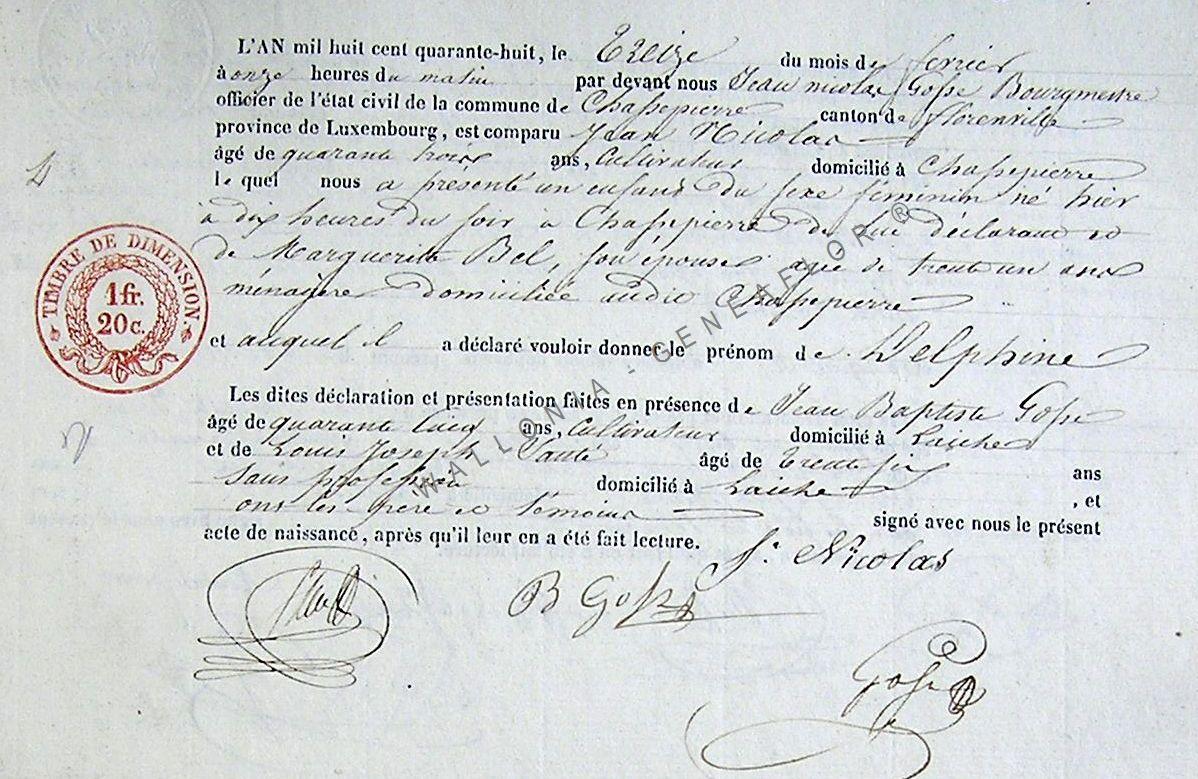 L'AN mil huit cent quarante-huit, le Treize du mois de fevrier
à onze heures du matin par devant nous Jean nicolas Gosse Bourgmestre
officier de l'état civil de la commune de Chassepierre canton de florenville
province de Luxembourg, est comparu Jean Nicolas
âgé de quarante trois ans, Cultivateur domicilié à Chassepierre
le quel nous a présenté un enfant du sexe féminin né hier
à dix heures du soir à Chassepierre de lui déclarant et
de Margueritte Bel, son épouse agée de trente un ans
ménagère domiciliée audit Chassepierre
et auquel il a déclaré vouloir donner le prénom de Delphine
Les dites déclaration et présentation faites en présence de Jean Baptiste Gosse
âgé de quarante Cinq ans, Cultivateur domicilié à Laiche
et de Louis Joseph âgé de Trente six ans
sans profession domicilié à Laiche , et
ont les père et témoins signé avec nous le présent
acte de naissance, après qu'il leur en a été fait lecture.
J. Nicolas
B Gosse
Gosse
TIMBRE DE DIMENSION
1 fr.
20 c.
WALLONIA - GENEALOR®
4